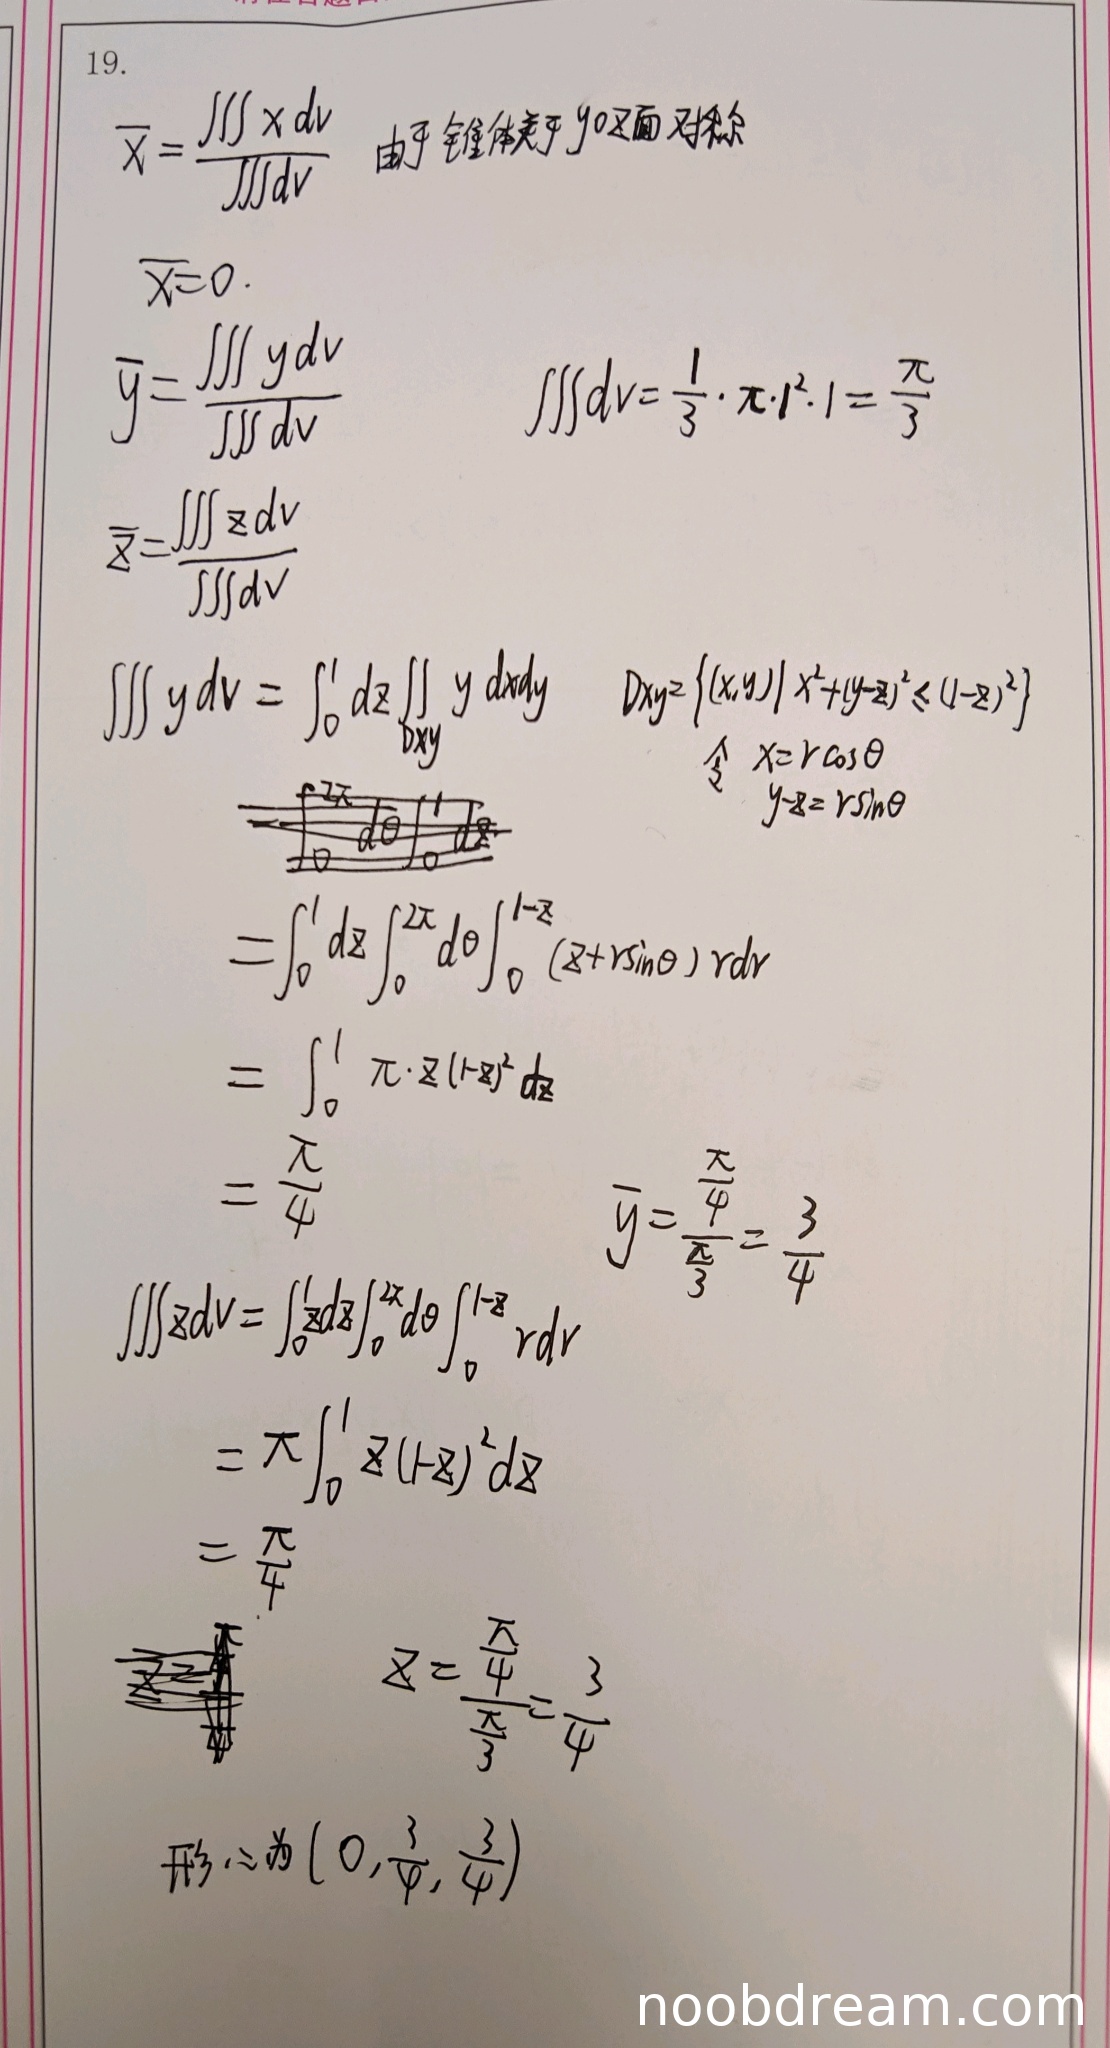 19.
x̄ = ∭xdv / ∭dv 由于锥体关于yoz面对称
x̄=0.
ȳ = ∭ydv / ∭dv ∭dv = 1/3 · π·1²·1 = π/3
z̄ = ∭zdv / ∭dv
∭ydv = ∫₀¹ dz ∬_Dxy y dxdy Dxy={(x,y)| x²+(y-z)² ≤ (1-z)²}
令 x=rcosθ
y-z=rsinθ
= ∫₀¹ dz ∫₀^2π dθ ∫₀^1-z (z+rsinθ) rdr
= ∫₀¹ π·z(1-z)² dz
= π/4 ȳ = (π/4)/(π/3) = 3/4
∭zdv = ∫₀¹ zdz ∫₀^2π dθ ∫₀^1-z rdr
= π∫₀¹ z(1-z)² dz
= π/4
z = (π/4)/(π/3) = 3/4
形心为(0, 3/4, 3/4)
noobdream.com